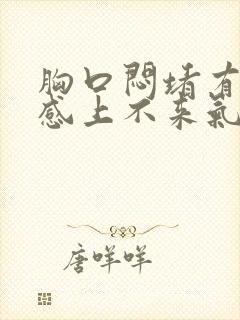 胸口闷堵有
感上不来氣
唐咩咩